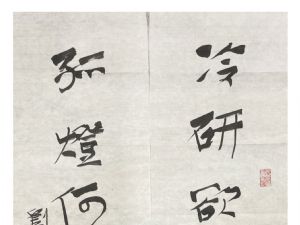 冷研欲
孤燈何
劉